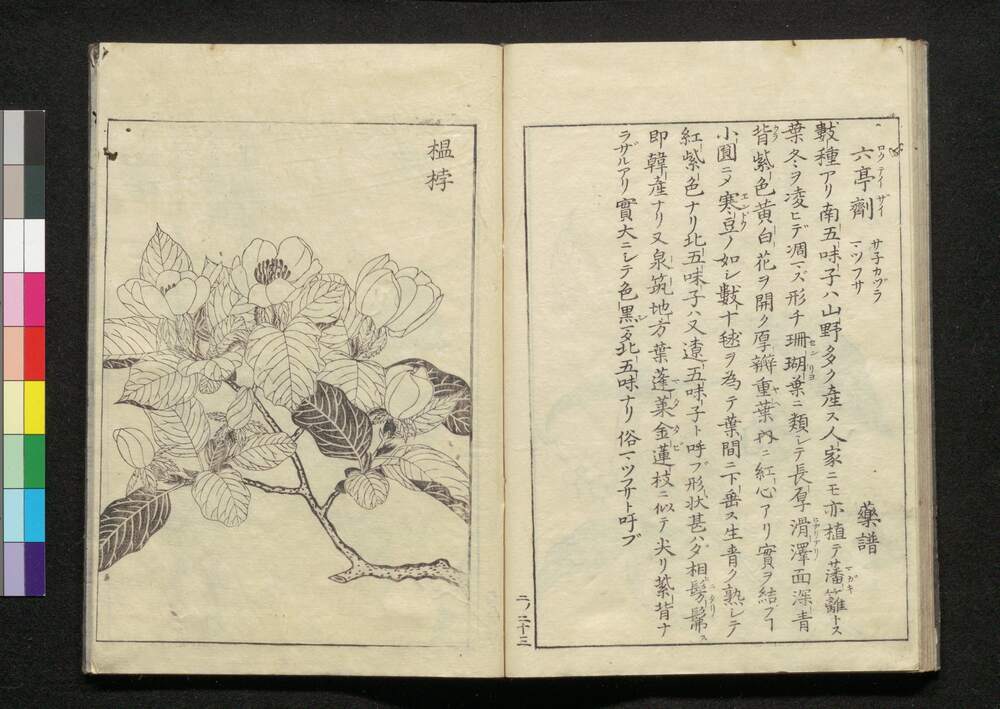 六亭劑 ロクテイザイ サ子カヅラ マツフサ 藥譜
數種アリ南五味子ハ山野多ク産ス人家ニモ亦植テ藩籬トス
葉冬ヲ凌ヒデ凋マズ形チ珊瑚葉ニ類シテ長厚滑澤面深青
背紫色黄白花ヲ開ク厚瓣重葉内ニ紅心アリ實ヲ結フヿ
小圓ニメ寒豆ノ如シ數十毬ヲ為テ葉間ニ下垂ス生青ク熟シテ
紅紫色ナリ北五味子ハ又遼五味子ト呼ブ形状甚ハダ相髣髴ス
即韓産ナリ又泉筑地方葉蓬莱金蓮枝ニ似テ尖リ紫背ナ
ラザルアリ實大ニシテ色黒シ又北五味ナリ俗マツフサト呼ブ
二ノ二十三
榲桲